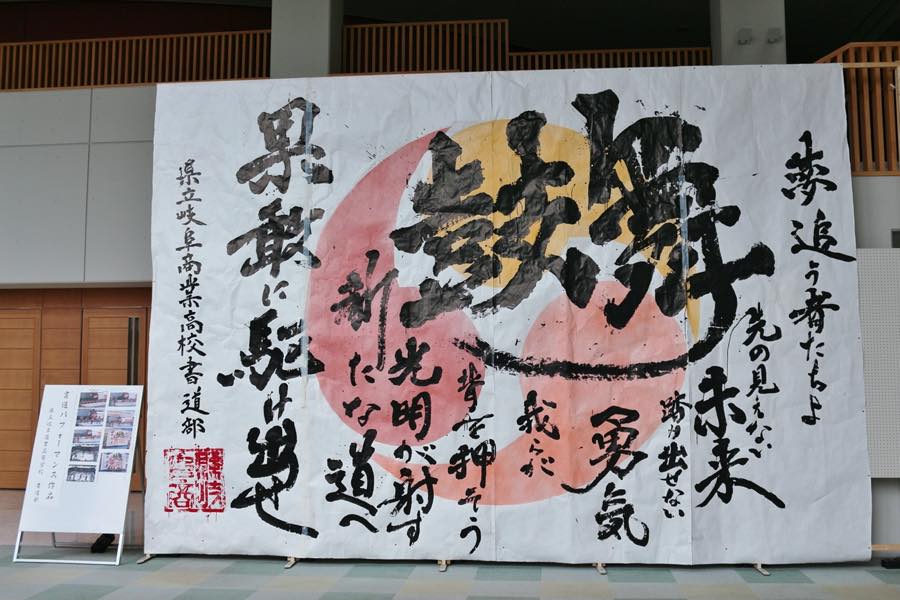 夢追う者たちよ
先の見えない
未来
踏み出せない
勇気
我らが
背を押そう
鼓舞
光明が射す
新たな道へ
果敢に駆け出せ
県立岐阜商業高校書道部
書道パフォーマンス作品